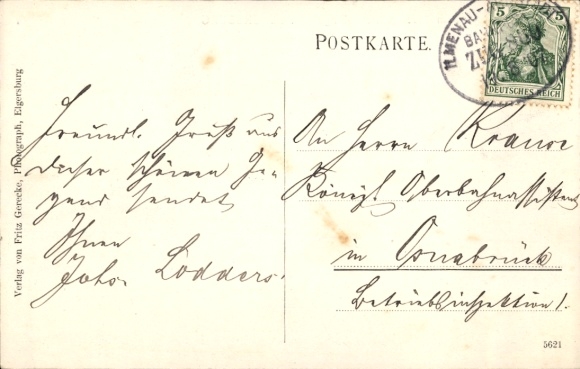 POSTKARTE.
ILMENAU-
BAH
ZUG
5 5
DEUTSCHES REICH
Verlag von Fritz Gerecke, Photograph, Elgersburg
Freundl. Gruß aus
dieser schönen Ge-
gend sendet
Ihnen
Johs. Lödders.
An Herrn Krause
Königl. Oberbahnassistent
in Osnabrück
Betriebsinspektion 1.
5621